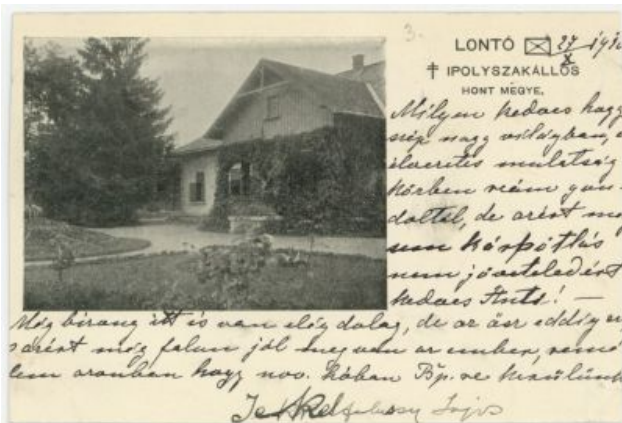 3.
LONTÓ 27/X 190
† IPOLYSZAKÁLLOS
HONT MEGYE.
Milyen kedves hogy
szép nagy világban, a
élvezetes mulatság
körben reám gon-
doltál, de azért még
sem kárpótlás
nem jöveteledért
kedves Anti! —
Még bizony itt is van elég dolog, de az ősz eddig
s azért még falun jól meg van az ember, remé
lem azonban hogy nov. hóban Bp. re kerülünk
Lajos